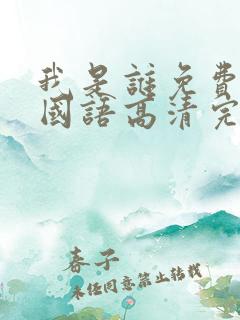 我是誰免費
國語高清完
春子
未经同意禁止转载